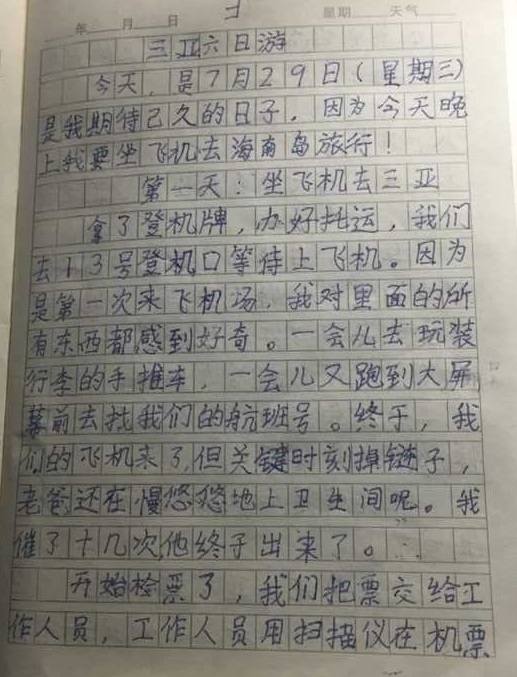 年 月 日 星期 天气
三亚六日游
今天，是7月29日（星期三）
是我期待已久的日子，因为今天晚
上我要坐飞机去海南岛旅行！
第一天：坐飞机去三亚
拿了登机牌，办好托运，我们
去13号登机口等待上飞机。因为
是第一次来飞机场，我对里面的所
有东西都感到好奇。一会儿去玩装
行李的手推车，一会儿又跑到大屏
幕前去找我们的航班号。终于，我
们的飞机来了，但关键时刻掉链子，
老爸还在慢悠悠地上卫生间呢。我
催了十几次，他终于出来了。
开始检票了，我们把票交给工
作人员，工作人员用扫描仪在机票